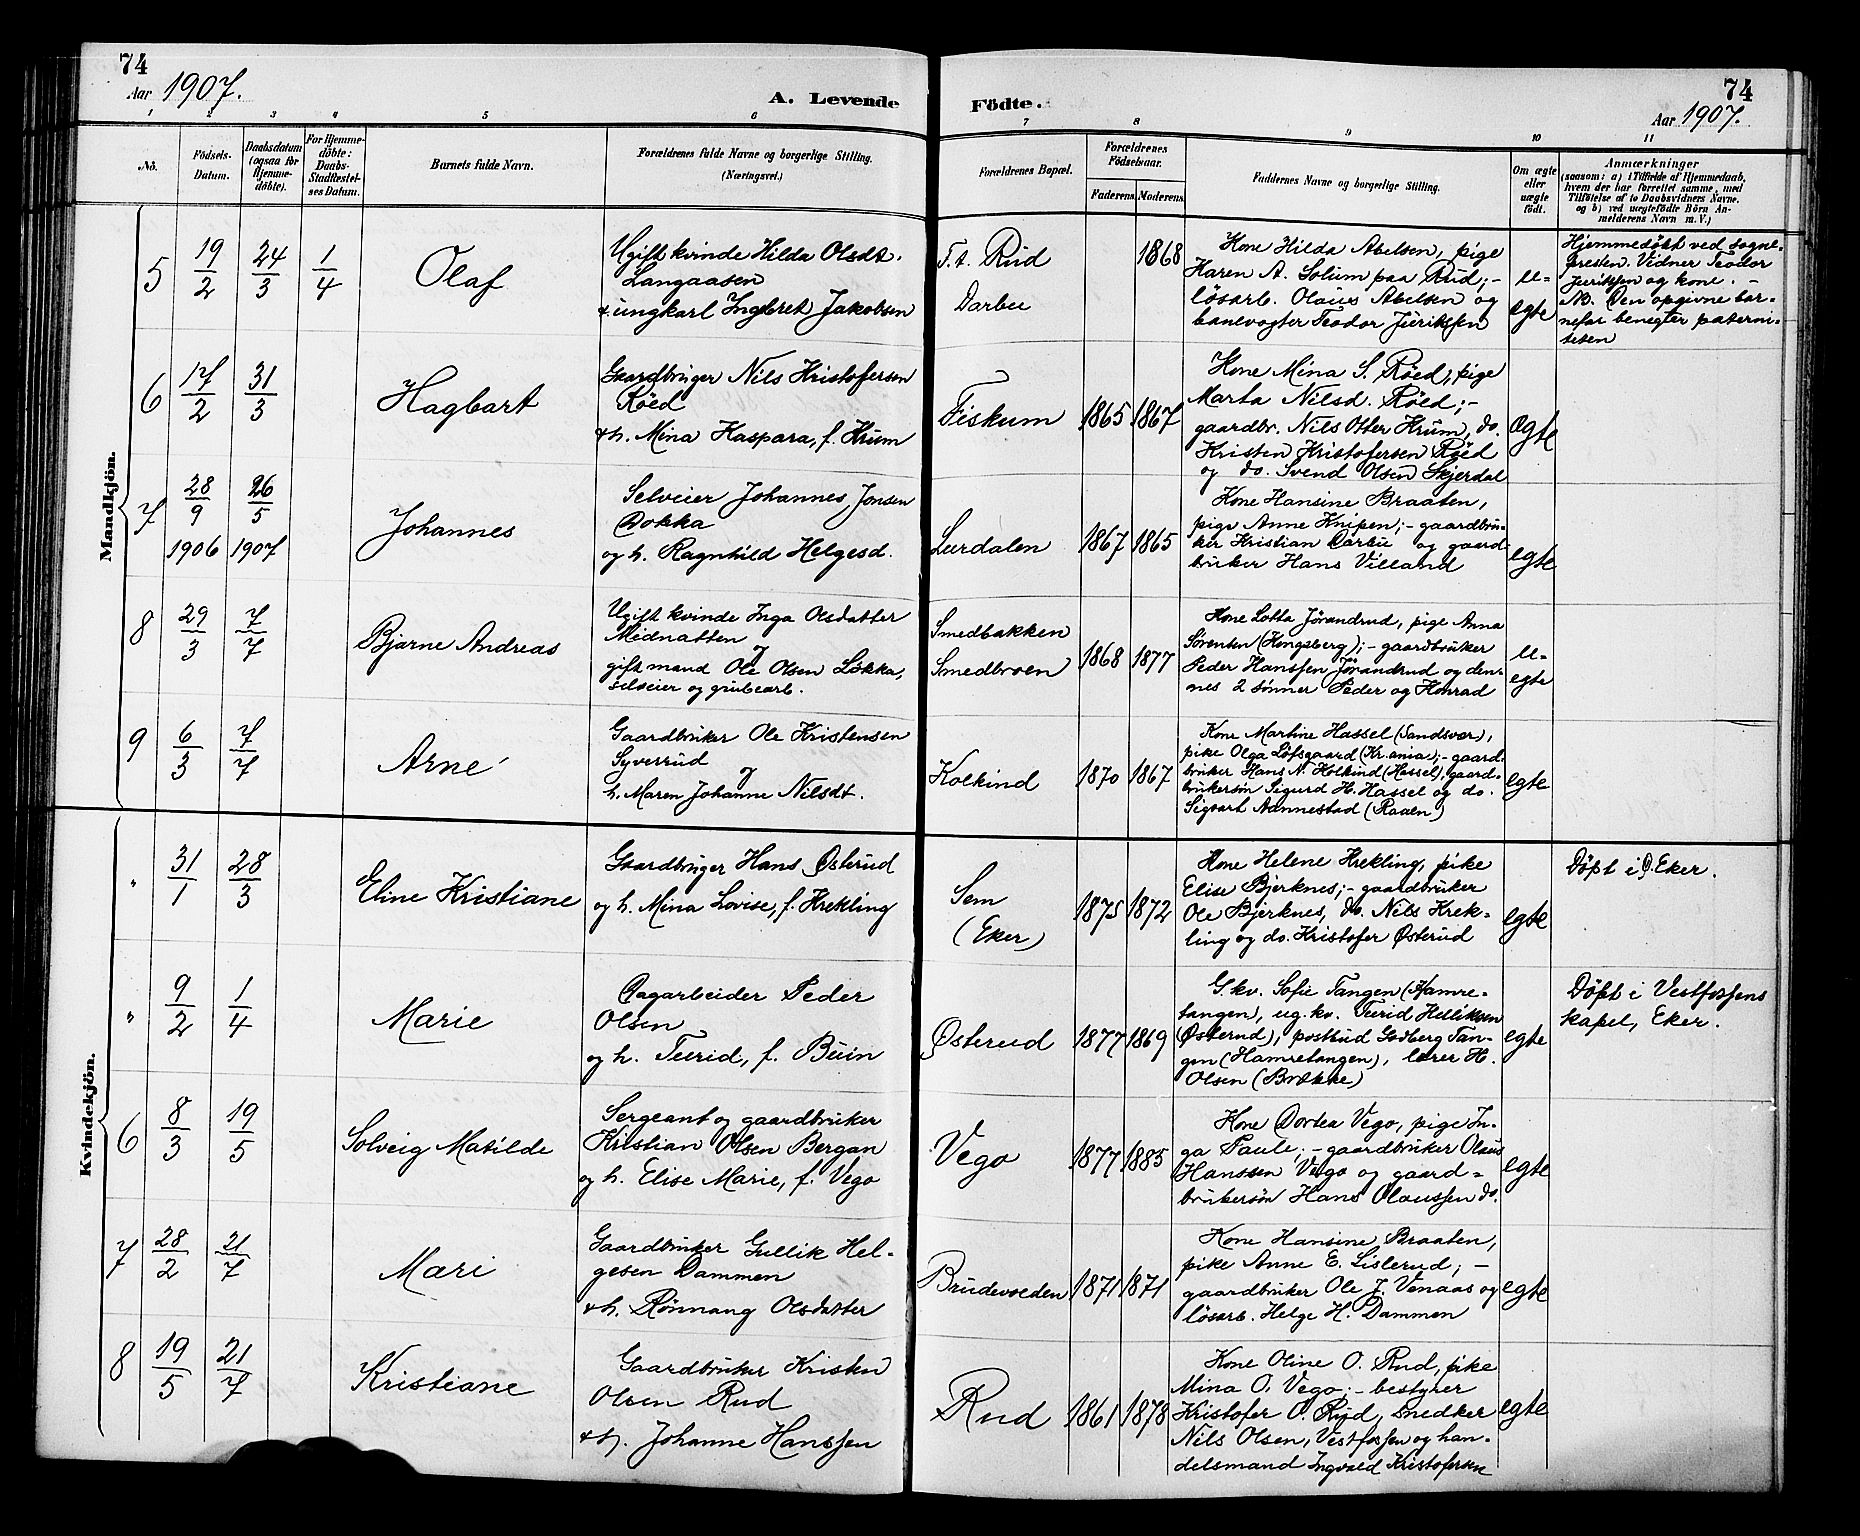 74
Aar 1907.
A. Levende
Födte.
74
Aar 1907.
1 2 3 4 5 6 7 8 9 10 11
No.
Födsels-
Datum.
Daabsdatum
(ogsaa for
Hjemme-
döbte).
For Hjemme-
döbte:
Daabs-
Stadfæstel-
ses Datum.
Barnets fulde Navn.
Forældrenes fulde Navne og borgerlige Stilling.
(Næringsvei.)
Forældrenes Bopæl.
Forældrenes
Födselsaar.
Faderens. Moderens.
Faddernes Navne og borgerlige Stilling.
Om ægte
eller
uægte
födt.
Anmærkninger
(saasom: a) i Tilfælde af Hjemmedaab,
hvem der har forrettet samme, med
Tilföielse af to Daabsvidners Navne.
og b) ved uægtefödte Börn An-
melderens Navn m. V.)
Mandkjön.
5
19/2
24/3
1/4
Olaf
Ugift kvinde Hilda Olsdt.
Langaasen
& ungkarl Ingbret Jakobsen
T.t. Rud
Darbu
1868
Kone Hilda Abelsen, pige
Karen A. Solum paa Rud; -
lösarb. Olaus Abelsen og
banevogter Teodor Juriksen
u-
egte
Hjemmedöbt ved sogne-
presten. Vidner Teodor
Juriksen og kone. -
NB. Den opgivne bar-
nefar benegter paterni-
teten
6
17/2
31/3
Hagbart
Gaardbruger Nils Kristofersen
Röed
& h. Mina Kaspara, f. Krum
Fiskum
1865
1867
Kone Mina S. Röed, pige
Marta Nilsd. Röed; -
gaardbr. Nils Otter Krum, do.
Kristen Kristofersen Röed
og do. Svend Olsen Skjerdal
Ægte
7
28/9
1906
26/5
1907
Johannes
Selveier Johannes Jonsen
Dokka
og h. Ragnhild Helgesd.
Lurdalen
1867
1865
Kone Hansine Braaten,
pige Anne Knipen; - gaardbru-
ker Kristian Darbu og gaard-
bruker Hans Villand
egte
8
29/3
7/7
Bjarne Andreas
Ugift kvinde Inga Olsdatter
Midnatten
og
gift mand Ole Olsen Lökka,
selveier og grubearb.
Smedbakken
Smedbroen
1868
1877
Kone Lotta Jörandrud, pige Anna
Sörensen (Kongsberg); - gaardbruker
Peder Hanssen Jörandrud og den-
nes 2 sönner Peder og Konrad
u-
egte
9
6/3
7/7
Arne
Gaardbruker Ole Kristensen
Syverrud
og
h. Maren Johanne Nilsdt.
Kolkind
1870
1867
Kone Martine Hassel (Sandsvær),
pike Olga Löfsgaard (Kr.ania); - gaard-
bruker Hans N. Kolkind (Hassel), gaard-
brukersön Sigurd H. Hassel og do.
Sigvart Aannestad (Raaen)
egte
Kvindekjön.
"
31/1
28/3
Eline Kristiane
Gaardbruger Hans Østerud
og h. Mina Lovise, f. Krekling
Sem
(Eker)
1875
1872
Kone Helene Krekling, pike
Elise Bjerknes; - gaardbruker
Ole Bjerknes, do. Nils Krek-
ling og do. Kristofer Østerud
egte
Döpt i Ø. Eker.
"
9/2
1/4
Marie
Dagarbeider Peder
Olsen
og h. Turid, f. Buin
Østerud
1877
1869
G.kv. Sofie Tangen (Hamre-
tangen), ug. kv. Turid Helliksen
(Østerud), postbud Godberg Tan-
gen (Hamretangen), lærer H.
Olsen (Brække)
egte
Döpt i Vestfossens
kapel, Eker.
6
8/3
19/5
Solveig Matilde
Sergeant og gaardbruker
Kristian Olsen Bergan
og h. Elise Marie, f. Vego
Vego
1877
1885
Kone Dortea Vego, pige In-
ga Paule; - gaardbruker Olaus
Hanssen Vego og gaard-
brukersön Hans Olaussen do.
egte
7
28/2
21/7
Mari
Gaardbruker Gullik Hel-
gesen Dammen
& h. Rönnaug Olsdatter
Brudevolden
1871
1871
Kone Hansine Braaten,
pike Anne E. Lislerud; -
gaardbruker Ole J. Venaas og
lösarb. Helge H. Dammen
egte
8
19/5
21/7
Kristiane
Gaardbruker Kristen
Olsen Rud
& h. Johanne Hanssen
Rud
1861
1878
Kone Oline O. Rud, pike
Mina O. Vego; - bestyrer
Kristofer O. Rud, snedker
Nils Olsen, Vestfossen og han-
delsmand Ingvald Kristofersen
egte